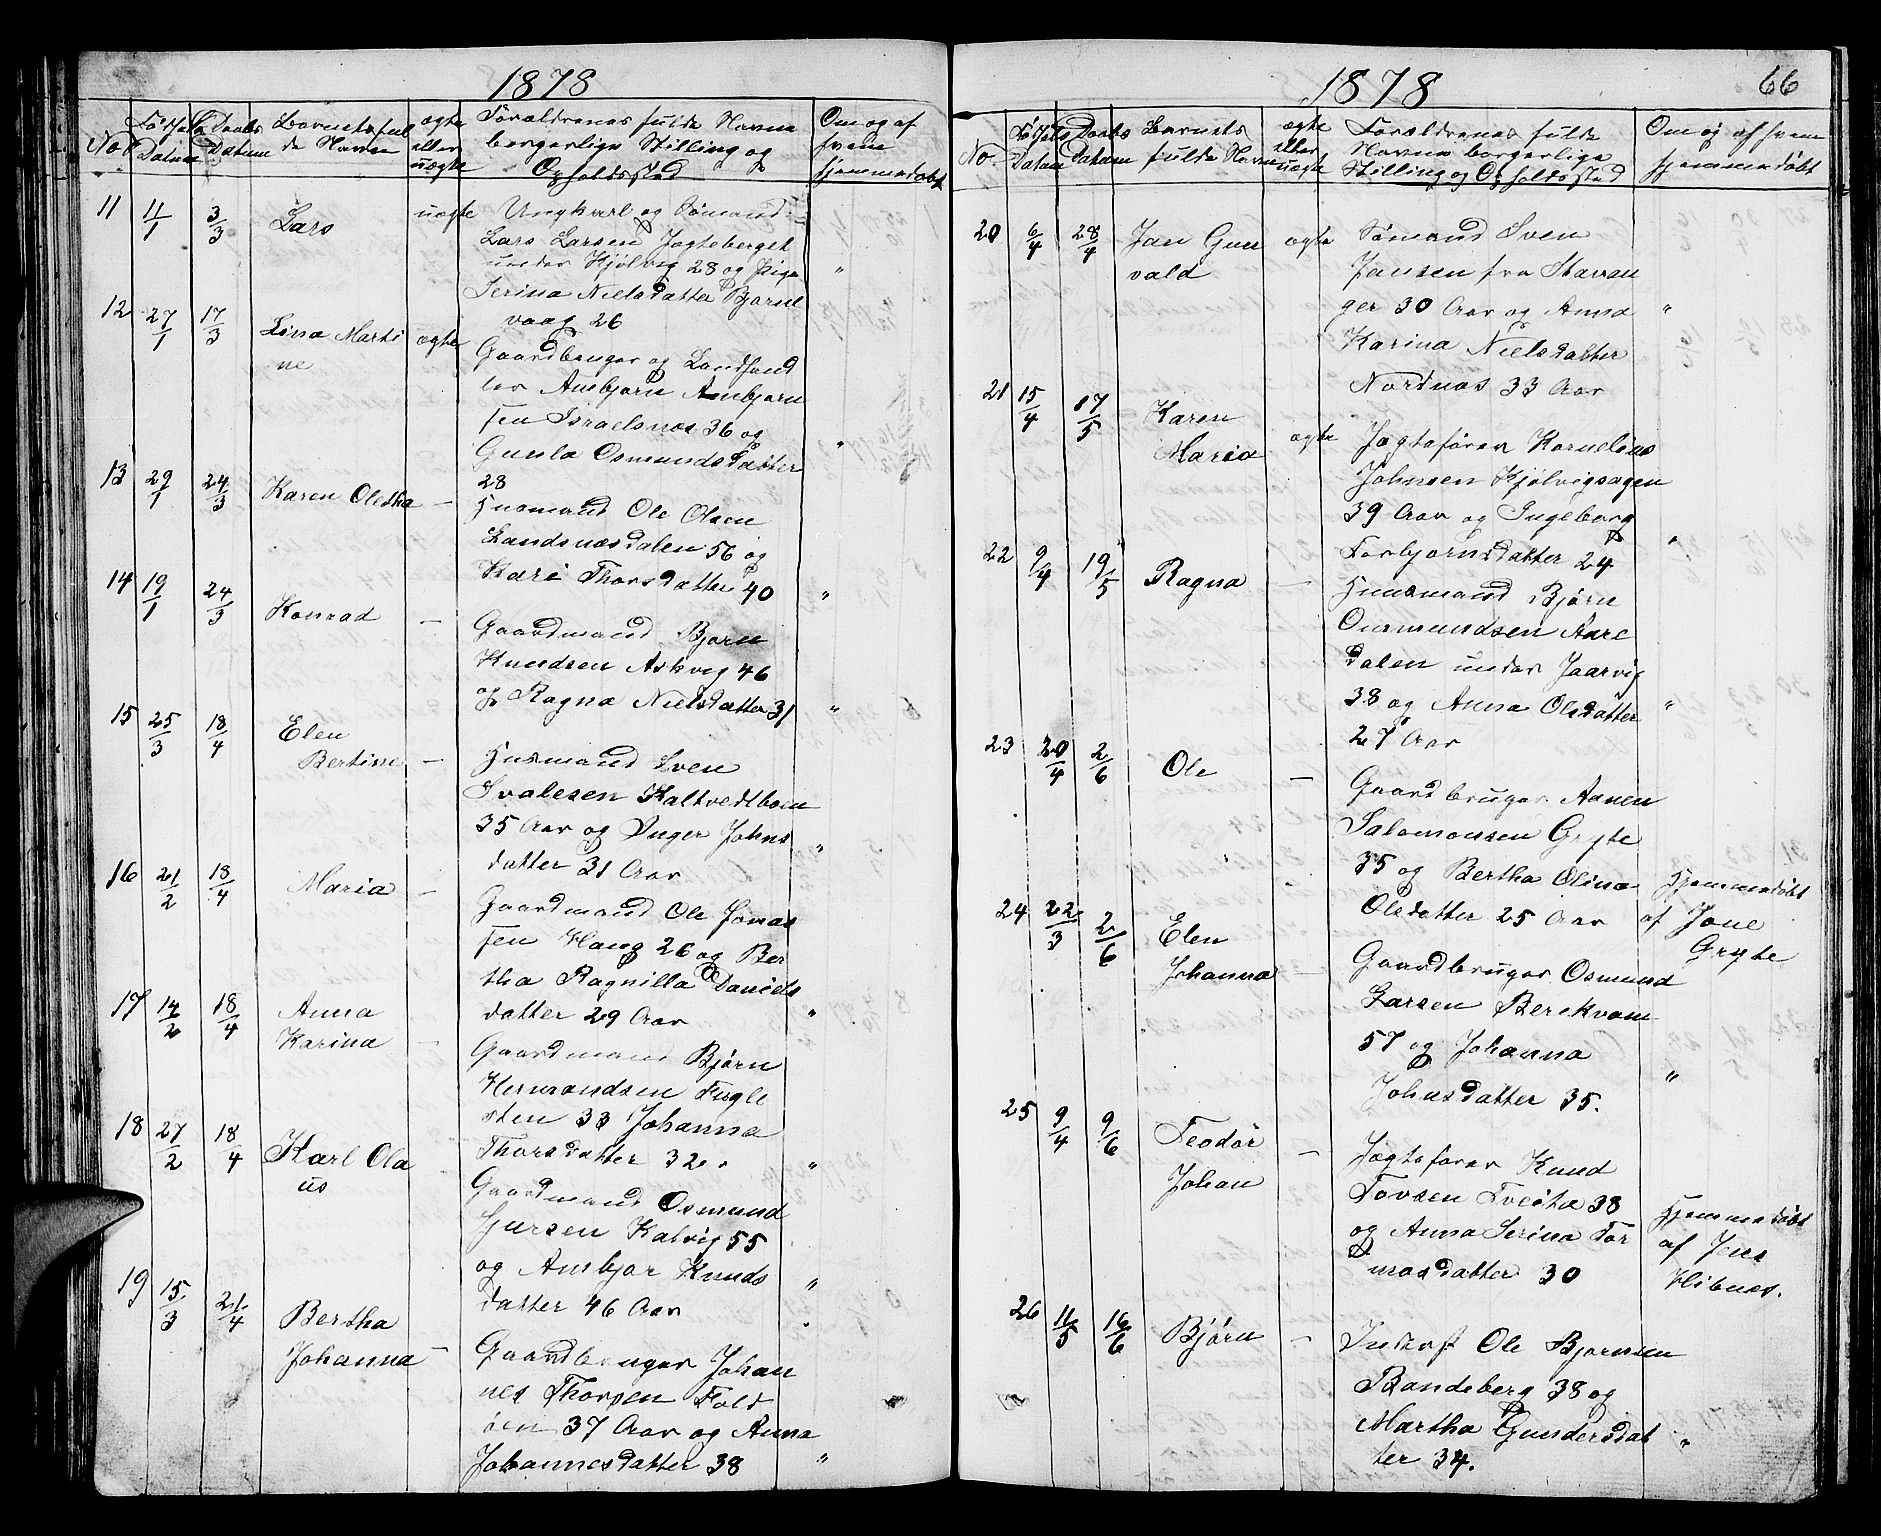 1878
No.
Fødsels Datum
Daabs Datum
Barnets ful
de Navn
ægte
eller
uægte
Forældrenes fulde Navne
borgerlige Stilling og
Opholdssted
Om og af
hvem
hjemmedøbt
11 11/1 3/3 Lars uægte Ungkarl og Sømand
Lars Larsen Jægteberget
under Kjølvig 28 og Pige
Serina Nielsdatter Bjørne
vaag 26 "
12 27/1 17/3 Lina Marti
ne
ægte
Gaardbruger og Landhand
ler Ambjørn Ambjørn
sen Israelsnæs 36 og
Gunla Osmundsdatter
28 "
13 29/1 24/3 Karen Oletha —
Husmand Ole Olsen
Landsnæsdalen 56 og
Kari Thorsdatter 40 "
14 19/1 24/3 Konrad —
Gaardmand Bjørn
Knudsen Askvig 46
og Ragna Nielsdatter 31 "
15 25/3 18/4 Elen
Bertine —
Husmand Sven
Svalesen Kaltvedtboen
35 Aar og Inger Johns
datter 31 Aar "
16 21/2 18/4 Maria —
Gaardmand Ole Jonas
sen Haug 26 og Ber
tha Ragnilla Daniels
datter 29 Aar "
17 14/2 18/4 Anna
Karina —
Gaardmand Bjørn
Hermandsen Fugle
sten 33 Johanna
Thorsdatter 32 "
18 27/2 18/4 Karl Ola
us
Gaardmand Osmund
Sjursen Kalvig 55
og Ambjør Knuds
datter 46 Aar "
19 15/3 21/4 Bertha
Johanna —
Gaardbruger Johan
nes Thorsen Fold
øen 37 Aar og Anna
Johannesdatter 38 "
1878
66
No.
Fødsels Datum
Daabs Datum
Barnets
fulde Navn
ægte
eller
uægte
Forældrenes fulde
Navne borgerlige
Stilling og Opholdssted
Om og af hvem
hjemmedøbt
20 6/4 28/4 Jan Gun
vald
ægte
Sømand Sven
Jansen fra Stavan
ger 30 Aar og Anna "
Karina Nielsdatter
Nordnæs 33 Aar
21 15/4 17/5 Karen
Maria
ægte
Jægtefører Kornelius
Johnsen Kjølvigsagen
39 Aar og Ingeborg
Torbjørnsdatter 24 "
22 9/4 19/5 Ragna —
Husmand Bjørn
Gunmundsen Aare
dalen under Jaarvig
38 og Anna Olsdatter "
27 Aar
23 20/4 2/6 Ole —
Gaardbruger Aanen
Salomonsen Gryte
35 og Bertha Olina
Olsdatter 25 Aar
Hjemmedøbt
af Jone
Gryte
24 22/3 2/6 Elen
Johanna —
Gaardbruger Osmund
Larsen Berekvam
57 og Johanna
Johnsdatter 35. "
25 9/4 9/6 Teodor
Johan —
Jægtefører Knud
Tovsen Tveita 38
og Anna Serina Tor
mosdatter 30
Hjemmedøbt
af Jens
Hibnæs.
26 11/5 16/6 Bjørn —
Inderst Ole Bjørnsen
Bandeberg 38 og
Martha Gundersdat
ter 34. "